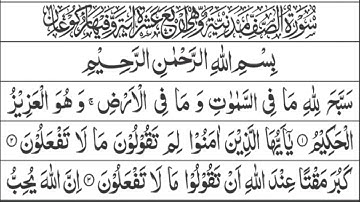 سُوۡرَةُ الصَّفِّ مَدَنِيَّةٌ وَّهِيَ اَرۡبَعَ عَشۡرَةَ اٰيَةً وَّفِيۡهَا رُكُوۡعَانِ
بِسۡمِ اللهِ الرَّحۡمٰنِ الرَّحِيۡمِ
سَبَّحَ لِلّٰهِ مَا فِى السَّمٰوٰتِ وَ مَا فِى الۡاَرۡضِ ۚ وَ هُوَ الۡعَزِيۡزُ
الۡحَكِيۡمُ ۝۱ يٰۤاَيُّهَا الَّذِيۡنَ اٰمَنُوۡا لِمَ تَقُوۡلُوۡنَ مَا لَا تَفۡعَلُوۡنَ ۝۲
كَبُرَ مَقۡتًا عِنۡدَ اللهِ اَنۡ تَقُوۡلُوۡا مَا لَا تَفۡعَلُوۡنَ ۝۳ اِنَّ اللهَ يُحِبُّ